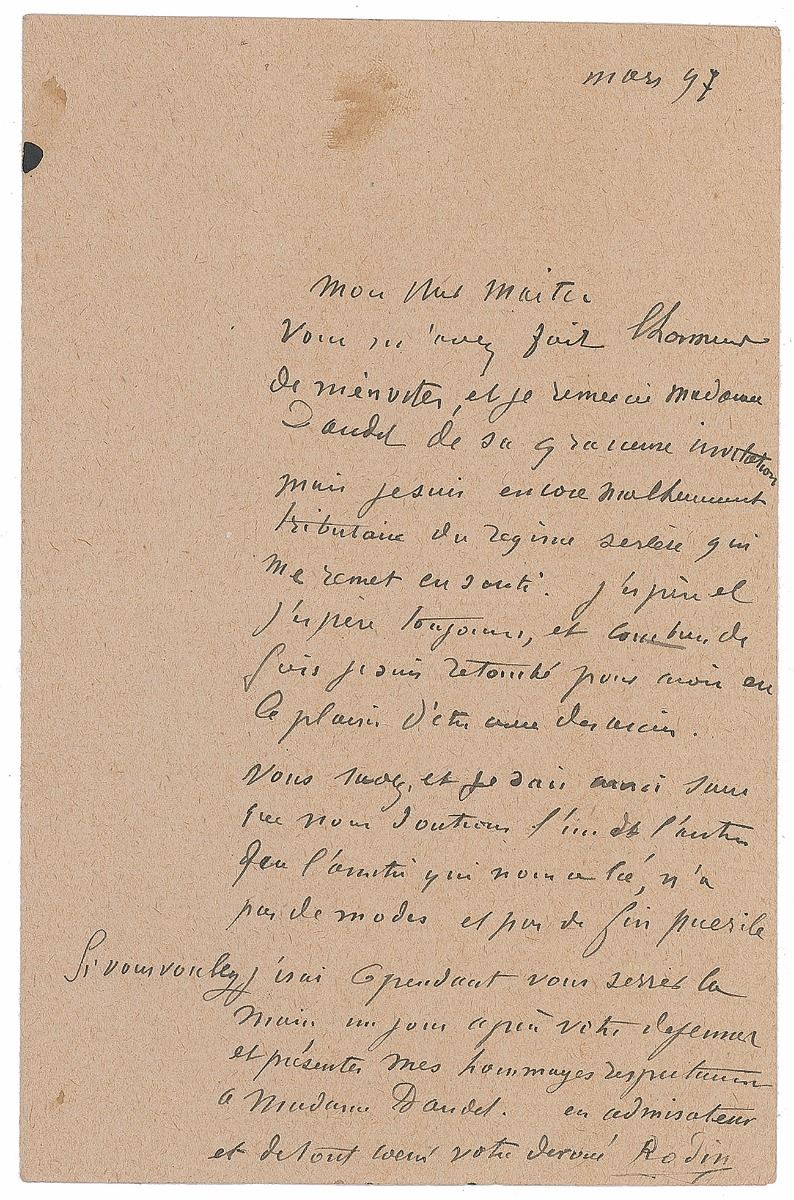 mars 97
Mon cher Maitre
Vous m'avez fait l'honneur
de m'inviter, et je remercie Madame
Daudet de sa gracieuse invitation
mais je suis encore malheureusement
tributaire du régime sévère qui
me remet en santé. J'espère et
j'espère toujours, et combien de
fois je suis retombé pour avoir eu
le plaisir d'être avec des amis.
Vous savez, et je sais aussi sans
que nous doutions l'un de l'autre
que l'amitié qui nous a lié, n'a
pas de modes et pas de fin puerile
Si vous voulez j'irai cependant vous serrer la
main un jour après votre dejeuner
et présenter mes hommages respectueux
a Madame Daudet. en admirateur
et de tout coeur votre devoué Rodin